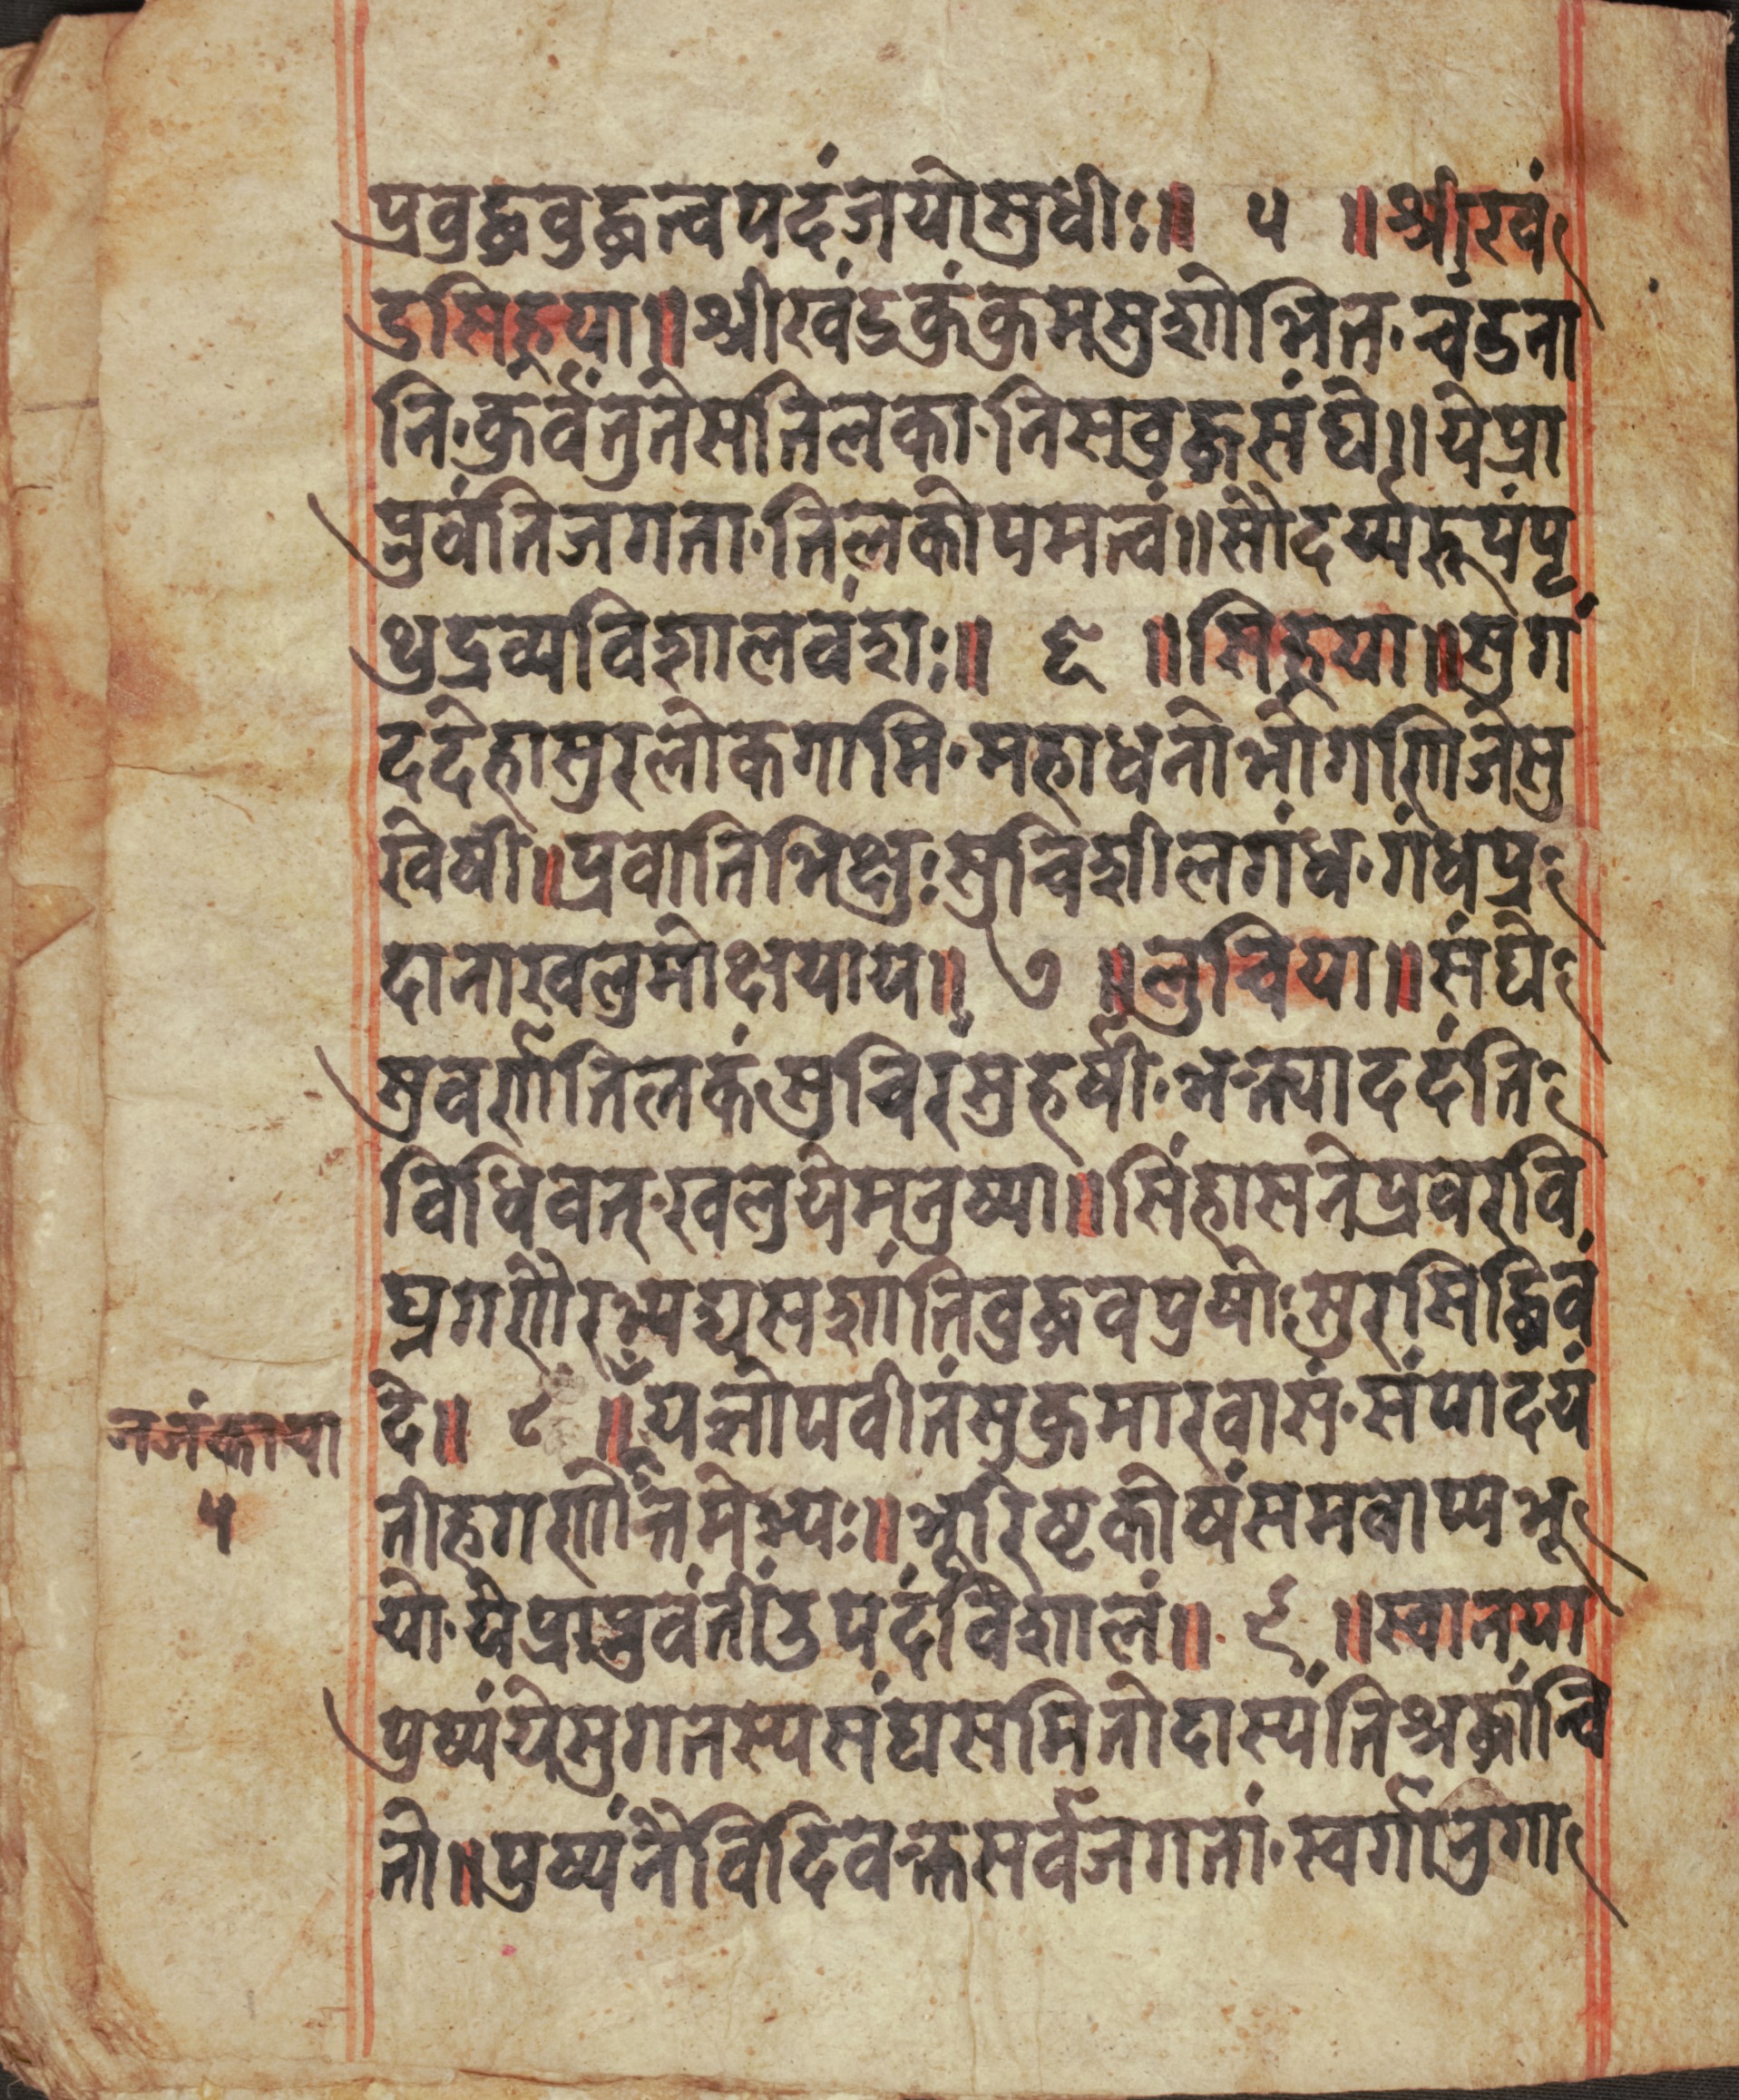 प्रवुद्धवुद्धत्वपदंजयोसुधीः॥ ५ ॥श्रीखं
डसिह्रया॥श्रीखंडकुंकुमसुशोभित·चंडना
नि·कुर्वंतुतेसतिलका·निसुवुद्धसंघे॥येप्रा
प्नुवंतिजगता·तिलकोपमत्वं॥सौदर्य्यरूपंपृ
थुद्रव्यविशालवंशः॥ ६ ॥सिह्रया॥सुगं
ददेहासुरलोकगामि·महाधनोभोगगिजेसु
खेषी॥प्रवातिभिक्षुःसुचिशीलगंध·गंधप्र
दानाखलुमोक्षयाय॥ ७ ॥लुचिया॥संघे
सुवर्णतिलकंसुचिरंसुहर्षी·भक्त्याददंति
विधिवत्·खलुयेमनुष्या॥सिंहासनेप्रवरवि
प्रगणैरभ्यद्यसशांतिवुद्धवपुषोःसुरसिद्धिवं
दे॥ ८ ॥यज्ञोपवीतंसुकुमारवासं·संपादयं
तीहगणोत्तमेभ्यः॥भूरिष्टकोषंसमवाप्यभू
यो·येप्राप्नुवंतींडुपदंविशालं॥ ९ ॥स्वानया
पुष्पंयेसुगतस्यसंघसमितोदास्यंतिश्रद्धांन्वि
तो॥पुष्पंनैविदिवक्तसर्वजगतां·स्वर्गानुगा
जजंकाया
५